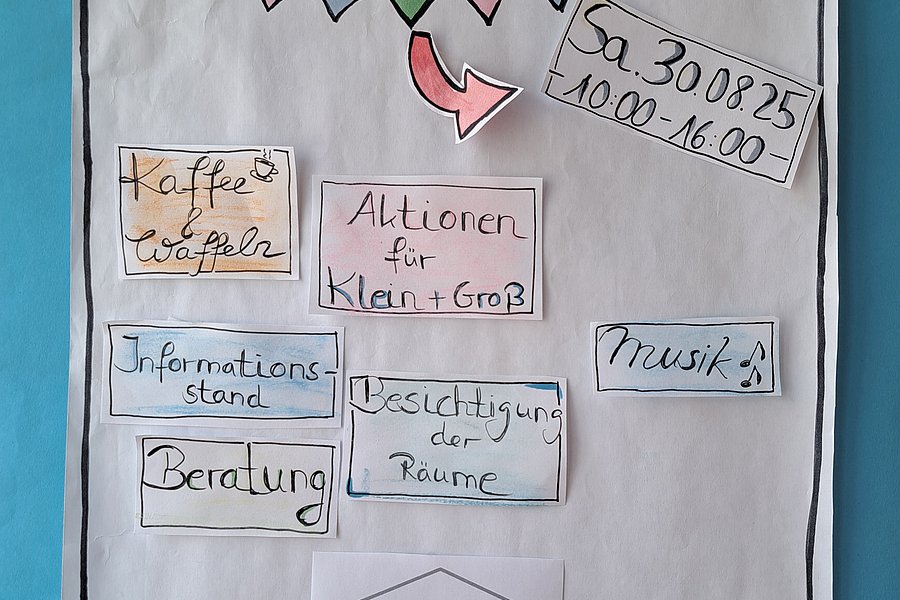 Sa. 30.08.25
- 10:00 - 16:00 -
Kaffee
&
Waffeln
Aktionen
für
Klein + Groß
Informations-
stand
Musik
Besichtigung
der
Räume
Beratung